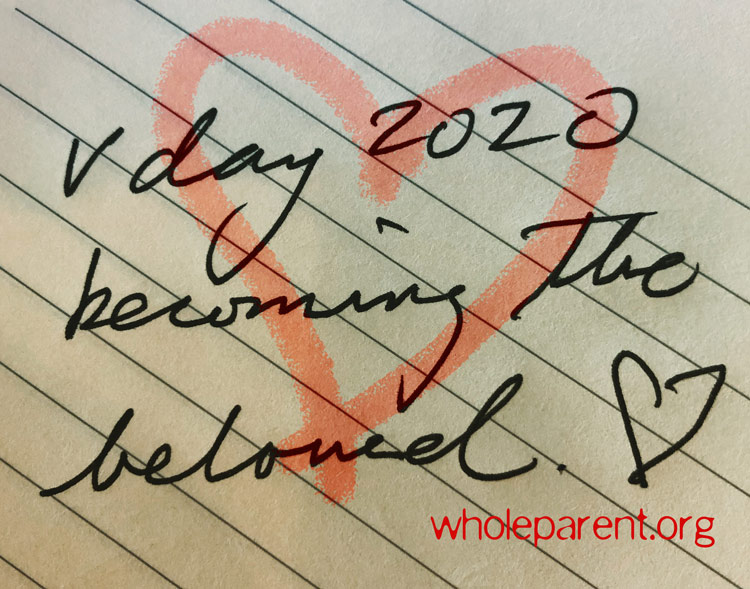 v day 2020
becoming the
beloved. ♡
wholeparent.org